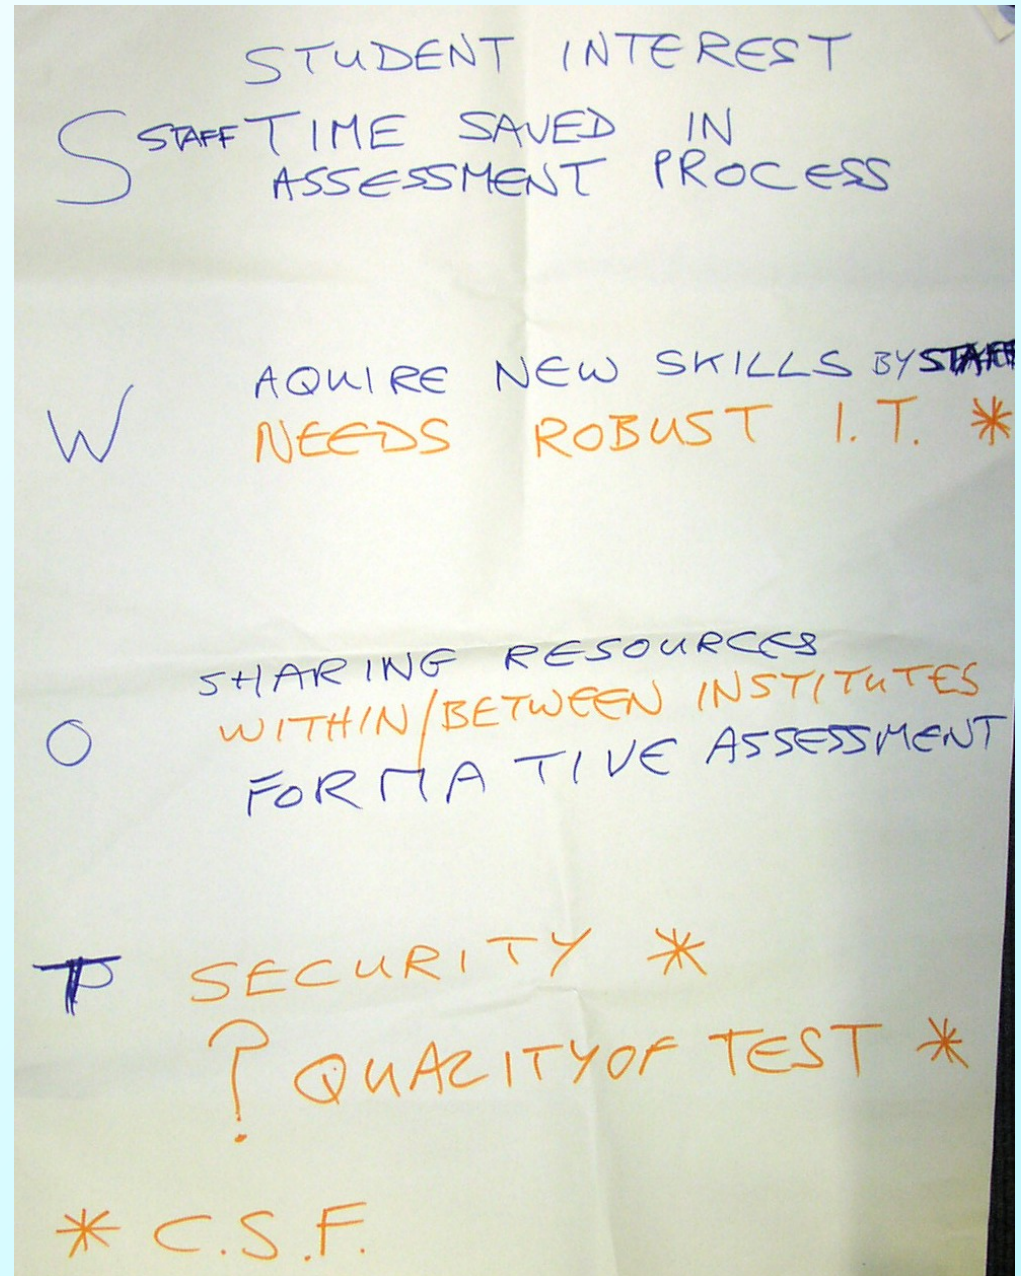 STUDENT INTEREST
S STAFF TIME SAVED IN
ASSESSMENT PROCESS
AQUIRE NEW SKILLS BY STAFF
W NEEDS ROBUST I.T. *
SHARING RESOURCES
WITHIN/BETWEEN INSTITUTES
O FORMATIVE ASSESSMENT
T SECURITY *
? QUALITY OF TEST *
* C.S.F.